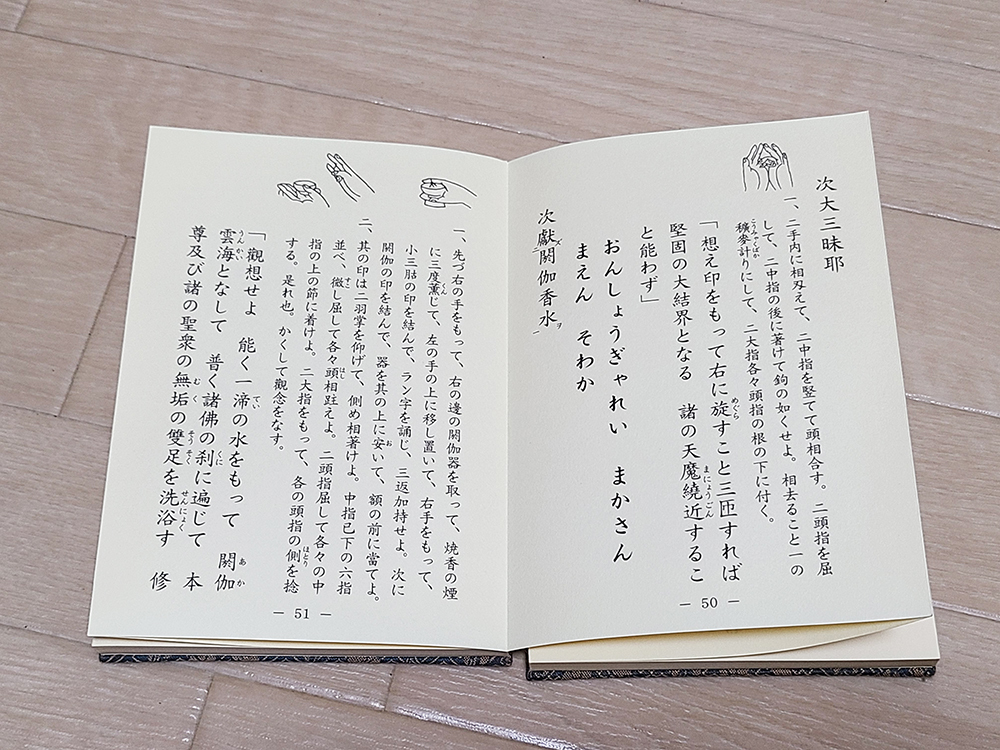 次大三昧耶
一、二手内に相叉えて、二中指を竪てて頭相合す。二頭指を屈
して、二中指の後に著けて鉤の如くせよ。相去ること一の
穬麥計りにして、二大指各々頭指の根の下に付く。
「想え印をもって右に旋すこと三匝すれば
堅固の大結界となる　諸の天魔繞近するこ
と能わず」
おんしょうぎゃれい　まかさん
まえん　そわか
次獻閼伽香水
― 50 ―
一、先づ右の手をもって、右の邊の閼伽器を取って、燒香の煙
に三度薫じて、左の手の上に移し置いて、右手をもって、
小三股の印を結んで、ラン字を誦じ、三返加持せよ。次に
閼伽の印を結んで、器を其の上に安いて、額の前に當てよ。
二、其の印は二羽掌を仰げて、側め相著けよ。中指已下の六指
並べ、微し屈して各々頭相跓えよ。二頭指屈して各々の中
指の上の節に着けよ。二大指をもって、各の頭指の側を捻
する。是れ也。かくして觀念をなす。
「觀想せよ　能く一渧の水をもって　閼伽
雲海となして　普く諸佛の刹に遍じて　本
尊及び諸の聖衆の無垢の雙足を洗浴す　修
― 51 ―